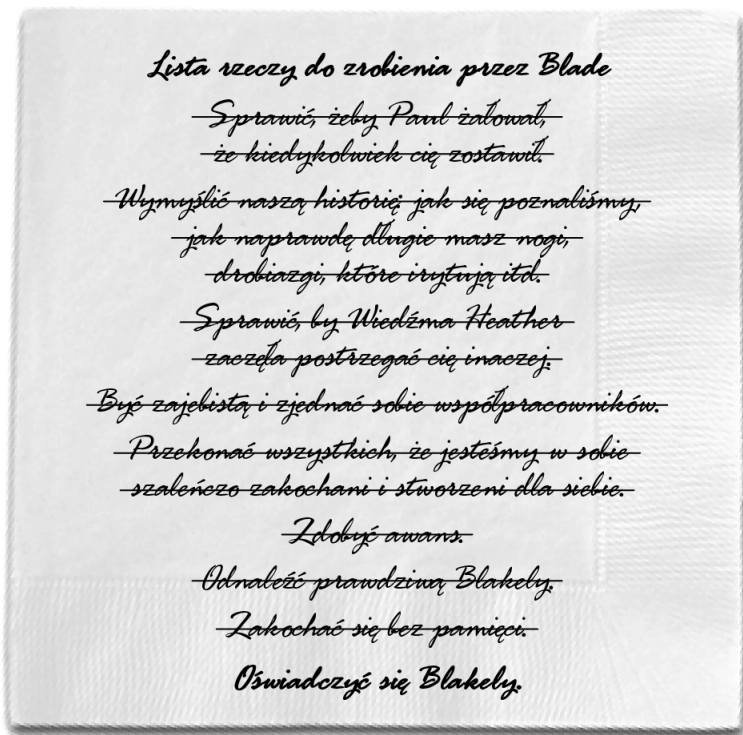 Lista rzeczy do zrobienia przez Blade
Sprawić, żeby Paul żałował,
że kiedykolwiek cię zostawił.
Wymyślić naszą historię: jak się poznaliśmy,
jak naprawdę długie masz nogi,
drobiazgi, które irytują itd.
Sprawić, by Wiedźma Heather
zaczęła postrzegać cię inaczej.
Być zajebistą i zjednać sobie współpracowników.
Przekonać wszystkich, że jesteśmy w sobie
szaleńczo zakochani i stworzeni dla siebie.
Zdobyć awans.
Odnaleźć prawdziwą Blakely.
Zakochać się bez pamięci.
Oświadczyć się Blakely.